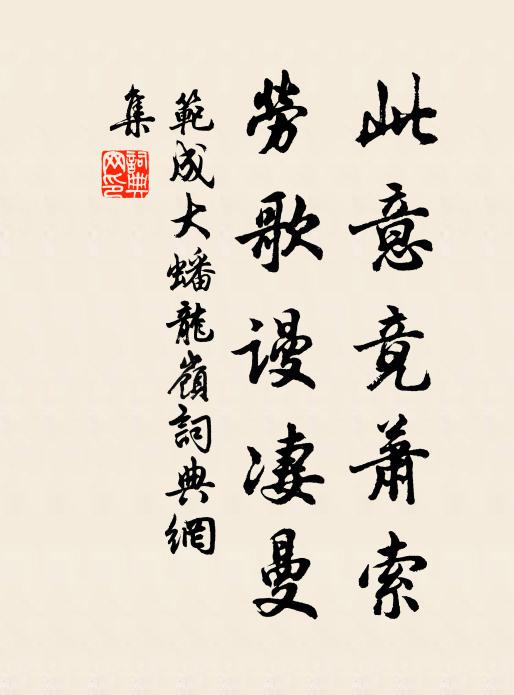 此意竟蕭索
勞歌謾凄曼
範成大蟠龍嶺詞典網
集
詞典
网印